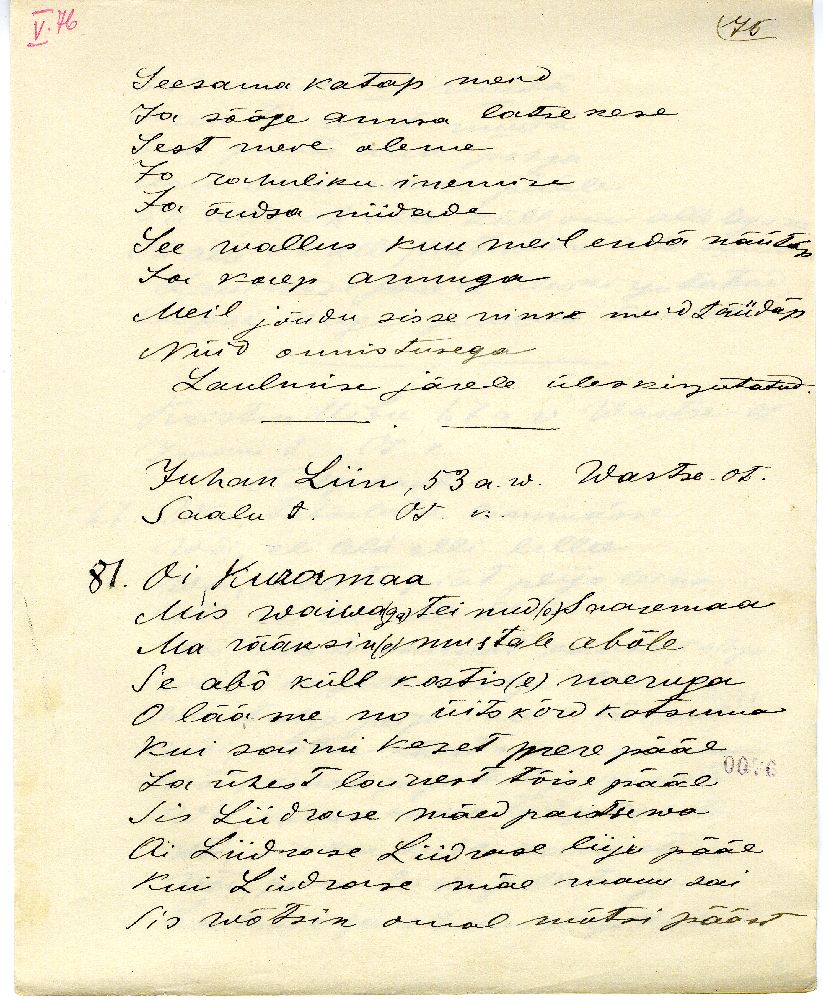 V. 76
75
Seesama katap meid
Ja sööge armsa latse kese
Sest meie oleme
Ja rahuliku inemise
Ja õudsa niidade
See wallus kuu meil endä näütäp
Ja kaep armuga
Meil jõudu sisse ninke meid täüdäp
Nüid õnnistusega
Laulmise järele üleskirjutatud.
Juhan Liin, 53 a. w. Wastse-Ot.
Saalu t. Ot. k.
81. Oi, Kuramaa
Mis waiwa(ga) teinud(e) Saaremaa
Ma rääksin(e) mustale abõle
Se abõ küll kostis(e) naeruga
O lääme no üitskõrd katsuma
Kui saimi keset mere pääl
Ja ühest lainest tõise pääl
Sis Liidrase mäed paistsewa
Oi Liidrase Liidrase liija pääl
Kui Liidrase mäe manu sai
Sis wõtsin omal mütsi pääst
0076